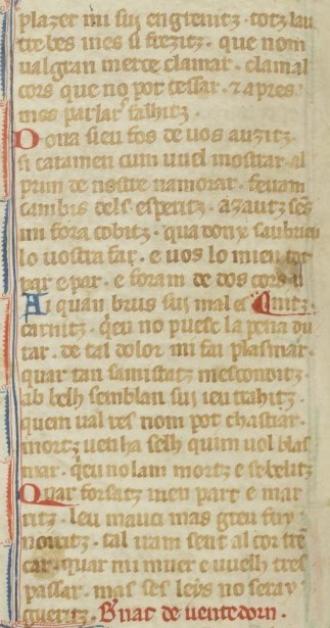 plazer mi suy engienitz. totz lau
tre bes mes si frezitz. que nom
ual gran merce clamar. clamal
cors que no pot cessar. ⁊ apres
mos parlar falhitz.
Dona sieu fos de uos auzitz.
si catamen cum uuel mostrar. al
prim de nostre namorar. feram
cambis dels esperitz. azautz ses
mi fora cobitz. qua donx saubrieu
lo uostra far. e uos lo mieu tot
par e par. e foram de dos cors u
nitz.
Ai quan brus suj mal es
carnitz. qeu no puesc la pena du
rar. de tal dolor mi fai plasmar.
quar tan samistatz mesconditz.
ab belh semblan suj ieu trahitz.
quem ual res nom pot chastiar.
mortz uenha selh quim uol blas
mar. qeu no lam mortz e sebelitz
Quar forsatz men part e mar
ritz. leu mauci mas greu fuy
noiritz. tal iram sent al cor tre
car. quar mi muer e uuelh tres
passar. mas ses leys no seray
gueritz. B'nat de uentedorn.